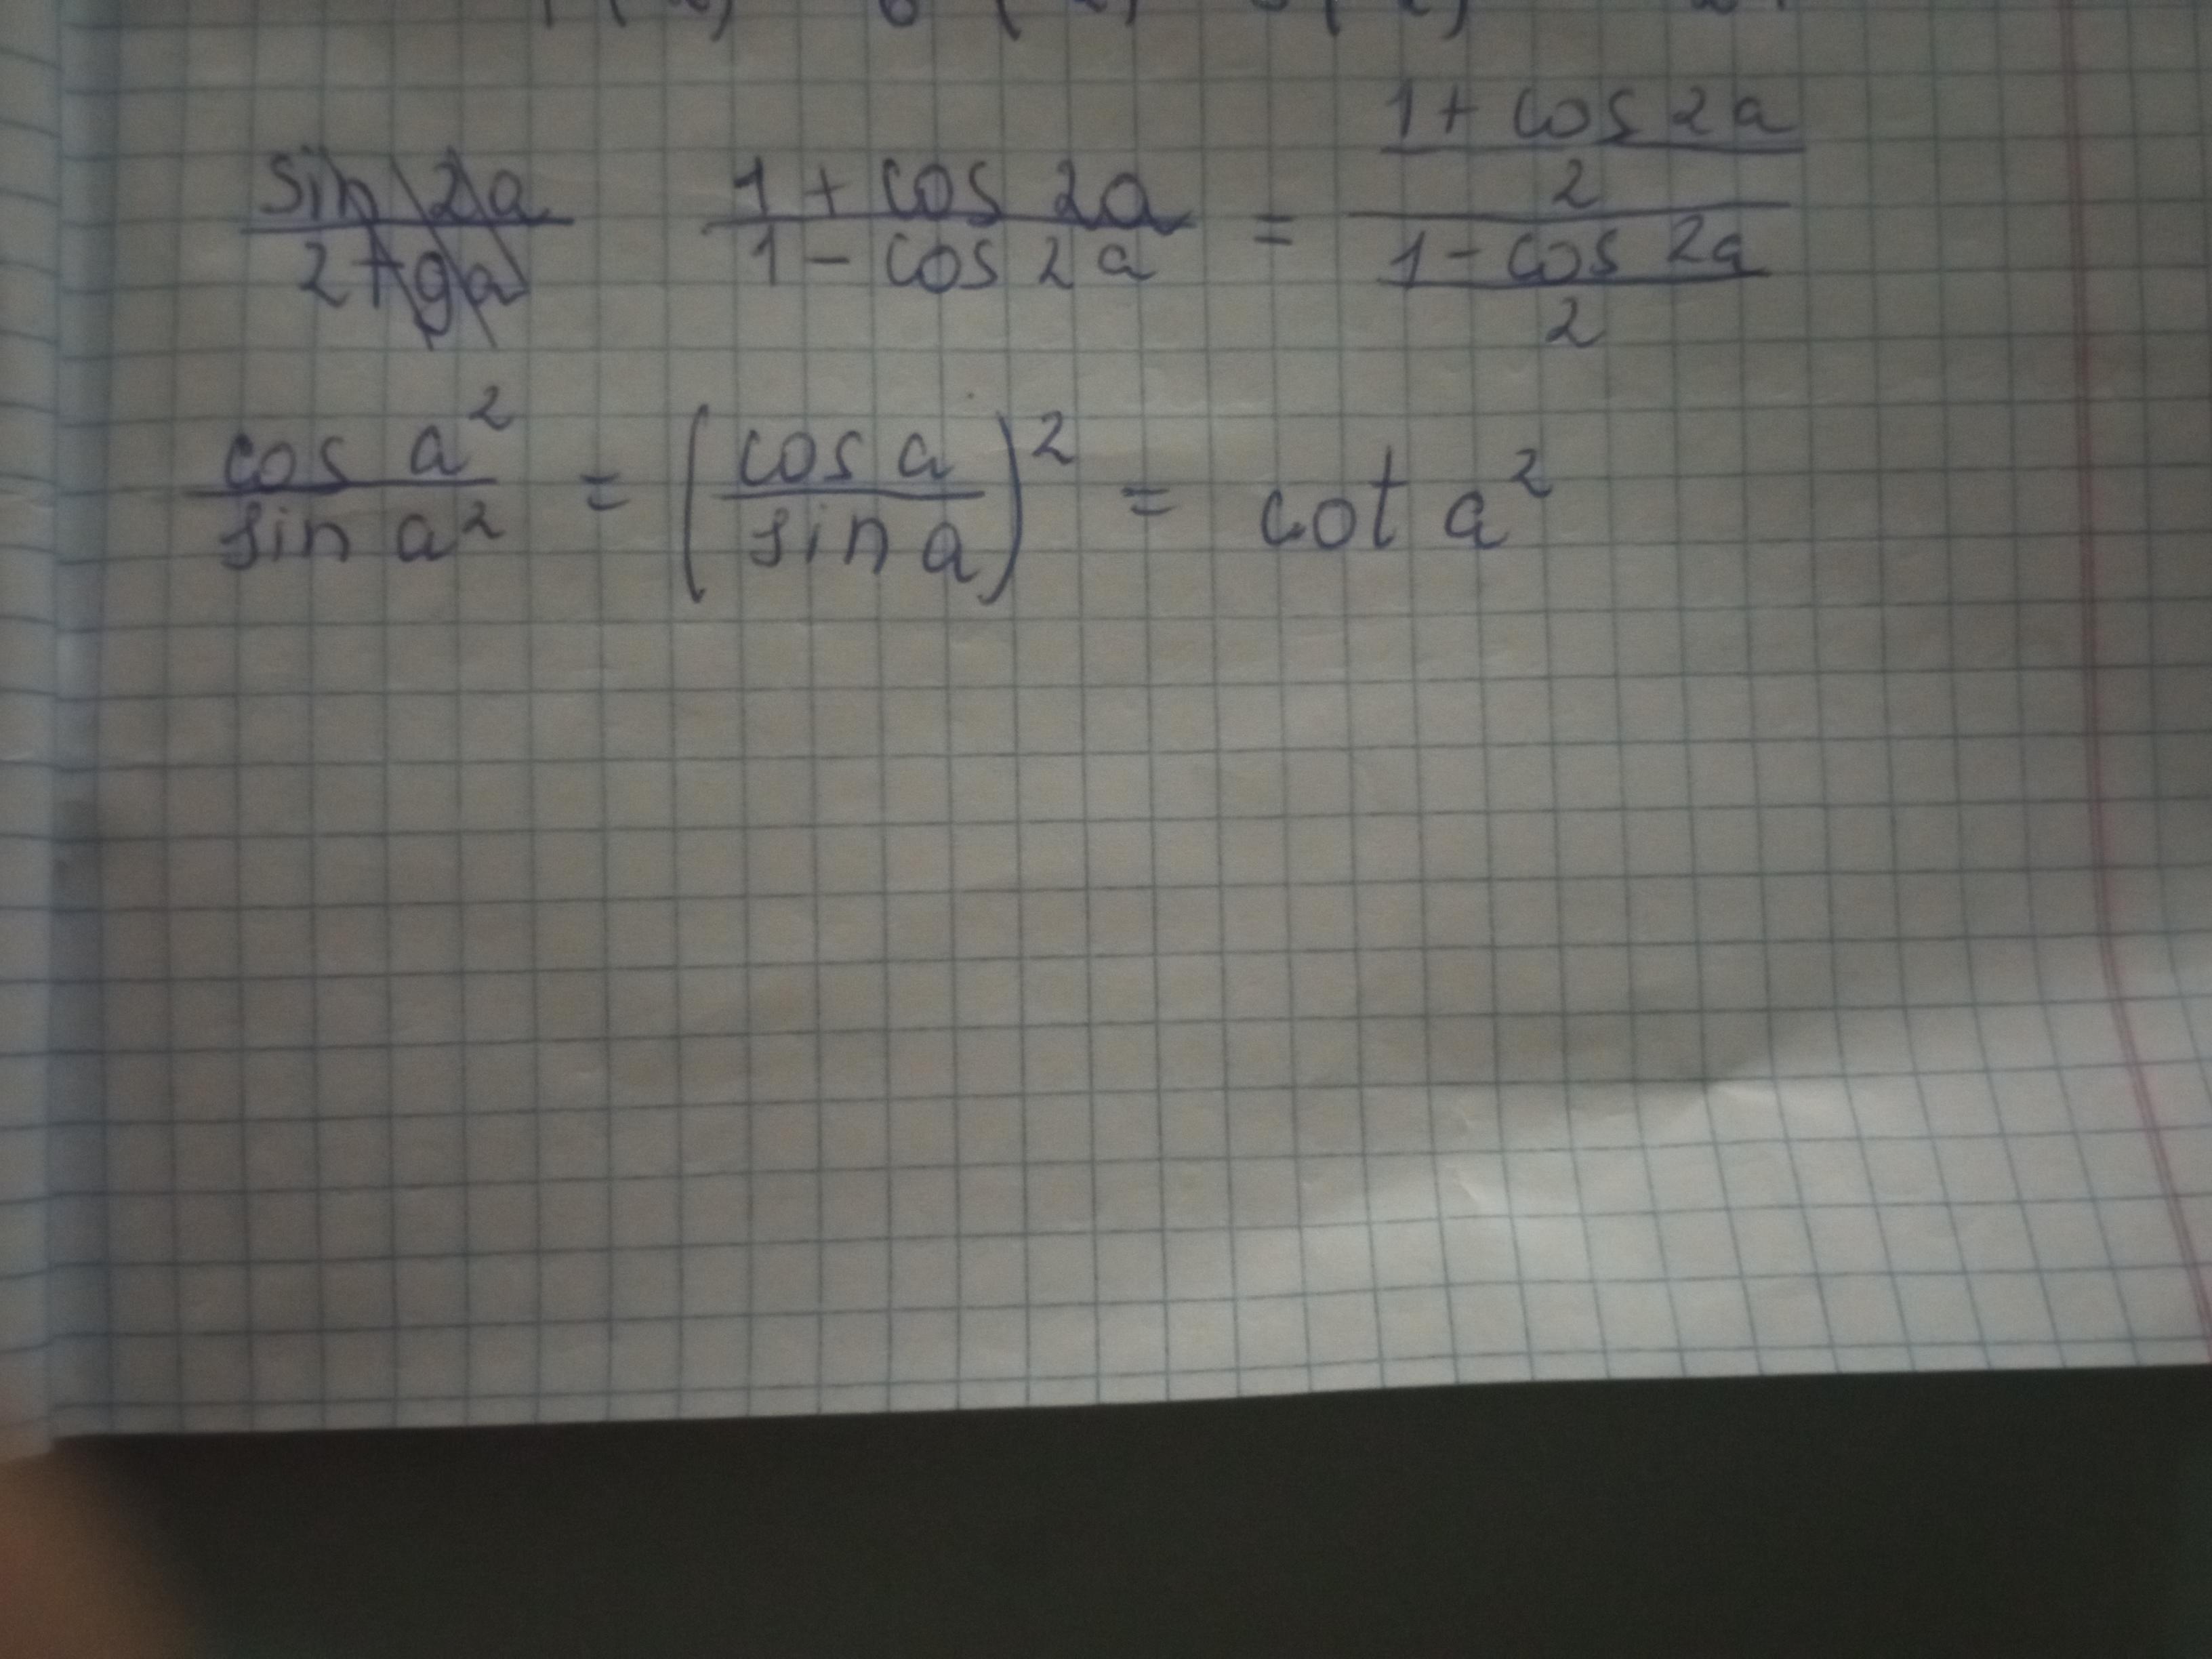 sin 2a / 2 tg a   (1 + cos 2a) / (1 - cos 2a) = ((1 + cos 2a) / 2) / ((1 - cos 2a) / 2)
cos a² / sin a² = (cos a / sin a)² = cot a²